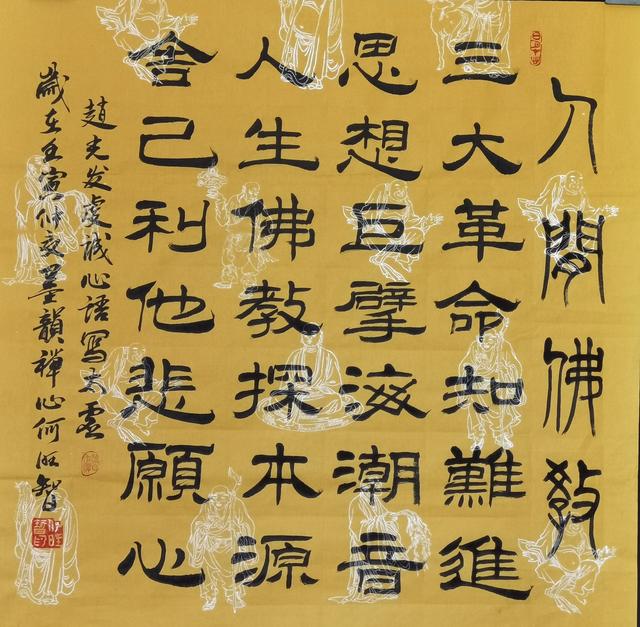 人間佛教
三大革命知難進
思想巨擘海潮音
人生佛教探本源
舍己利他悲願心
趙光发虔誠心語寫太虛
歲在壬寅仲夏墨韻禪心何旺智